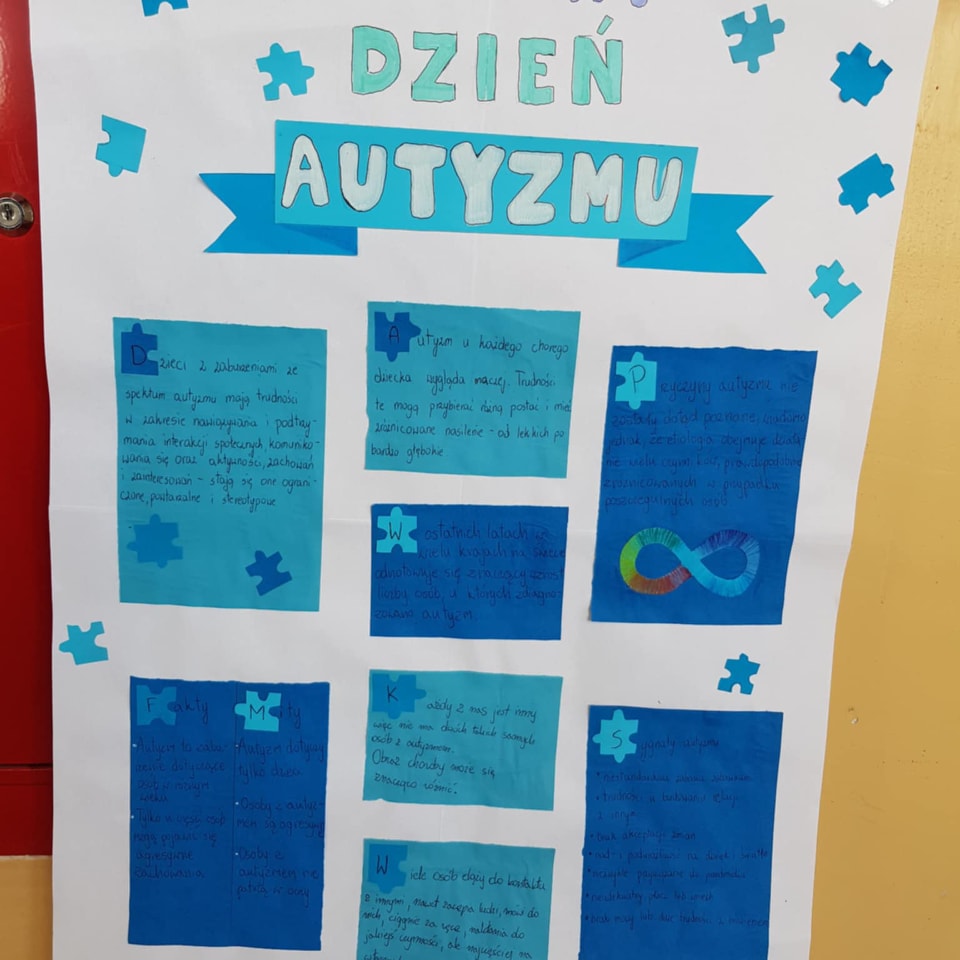 DZIEŃ
AUTYZMU
Dzieci z zaburzeniami ze
spektrum autyzmu mają trudności
w zakresie nawiązywania i podtrzy-
mania interakcji społecznych, komuniko-
wania się oraz aktywności, zachowań
i zainteresowań - stają się one ograni-
czone, powtarzalne i stereotypowe
Autyzm u każdego chorego
dziecka wygląda inaczej. Trudności
te mogą przybierać różną postać i mieć
zróżnicowane nasilenie - od lekkich po
bardzo głębokie.
W ostatnich latach w
wielu krajach na świecie
odnotowuje się znaczący wzrost
liczby osób, u których zdiagno-
zowano autyzm.
Przyczyny autyzmu nie
zostały dotąd poznane, wiadomo
jednak, że etiologia obejmuje działa
nie wielu czynników, prawdopodobnie
zróżnicowanych w przypadku
poszczególnych osób.
Fakty
Autyzm to zabu-
rzenie dotyczące
osób w różnym
wieku
Tylko u części osób
mogą pojawić się
agresywne
zachowania
Mity
Autyzm dotyczy
tylko dzieci
Osoby z autyz-
mem są agresywne
Osoby z
autyzmem nie
patrzą w oczy
Każdy z nas jest inny
więc nie ma dwóch takich samych
osób z autyzmem.
Obraz choroby może się
znacząco różnić.
Wiele osób dąży do kontaktu
z innymi, nawet zaczepia ludzi, mówi do
nich, ciągnie za rękę, nakłania do
jakiejś czynności, ale najczęściej na
Sygnały autyzmu
trudności w budowaniu relacji
z innymi
brak akceptacji zmian
na dźwięk i światło